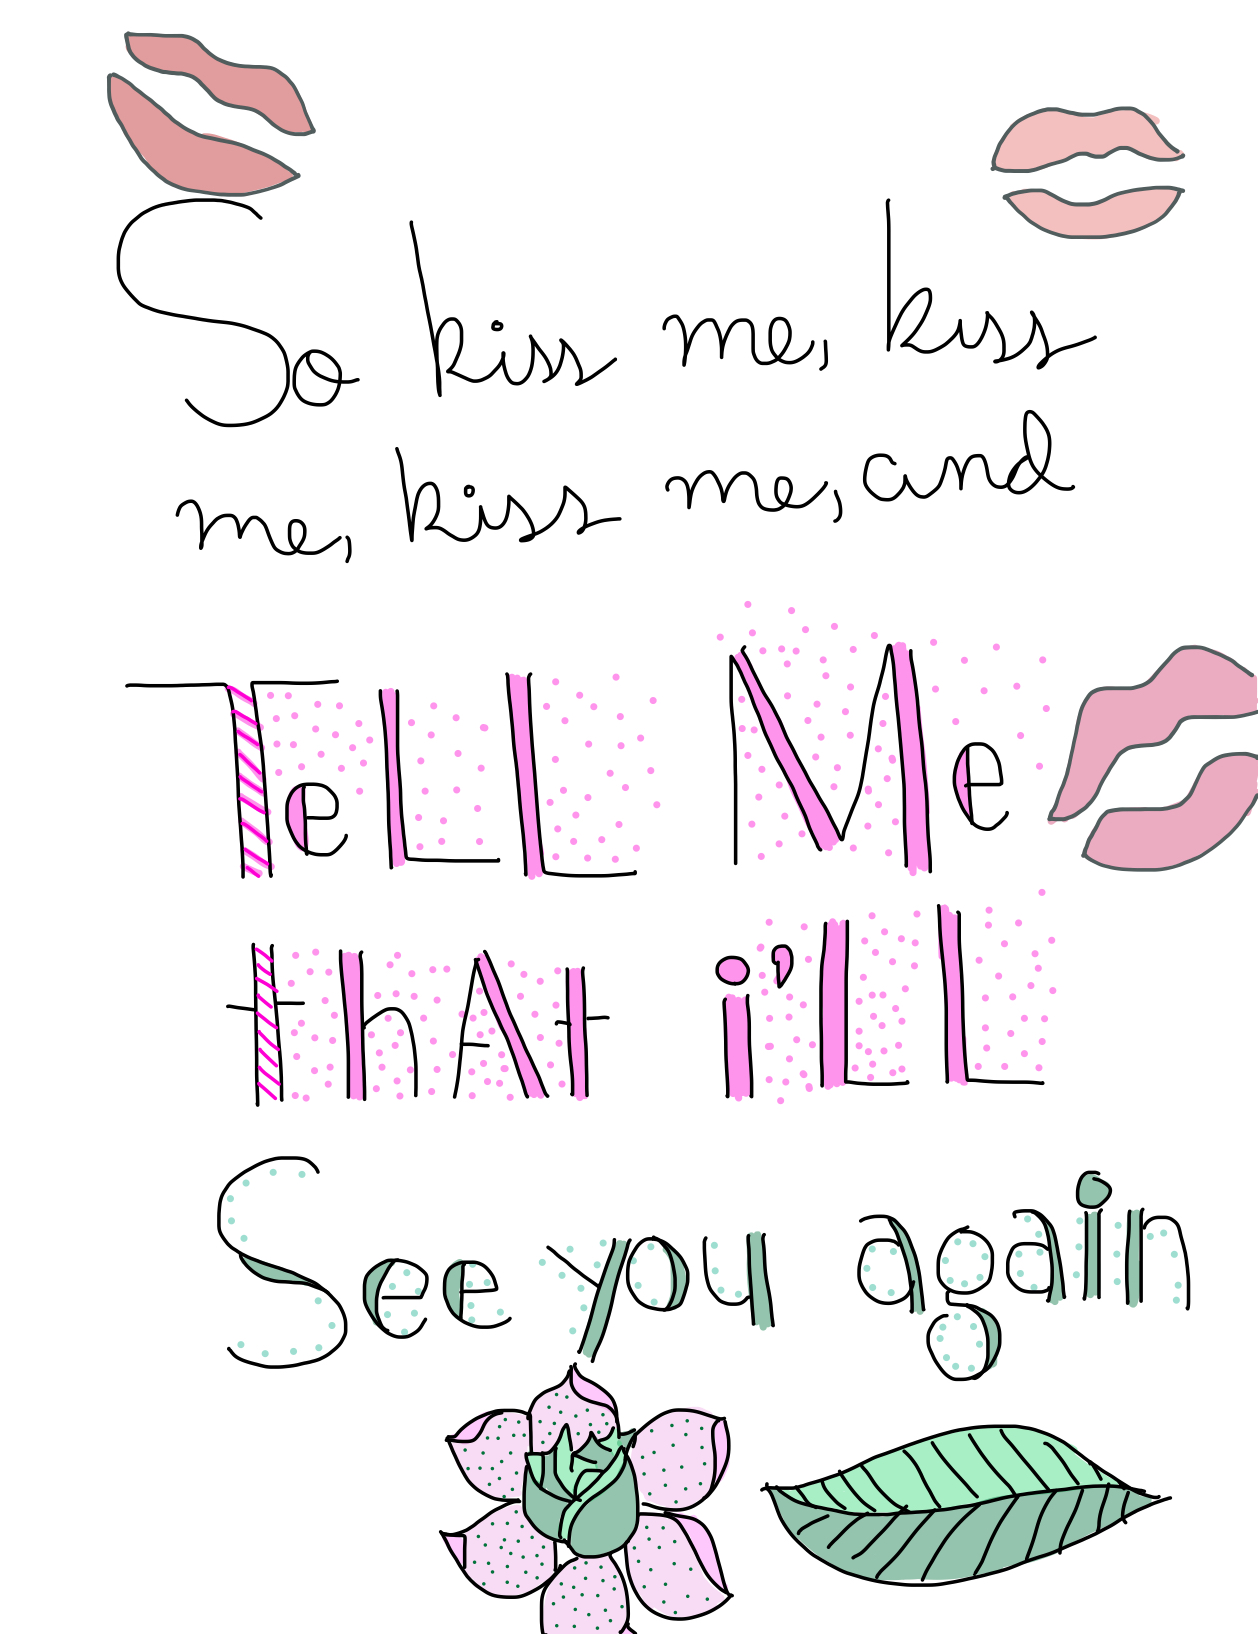 So kiss me, kiss
me, kiss me, and
TeLL Me
thAt i'LL
See you again